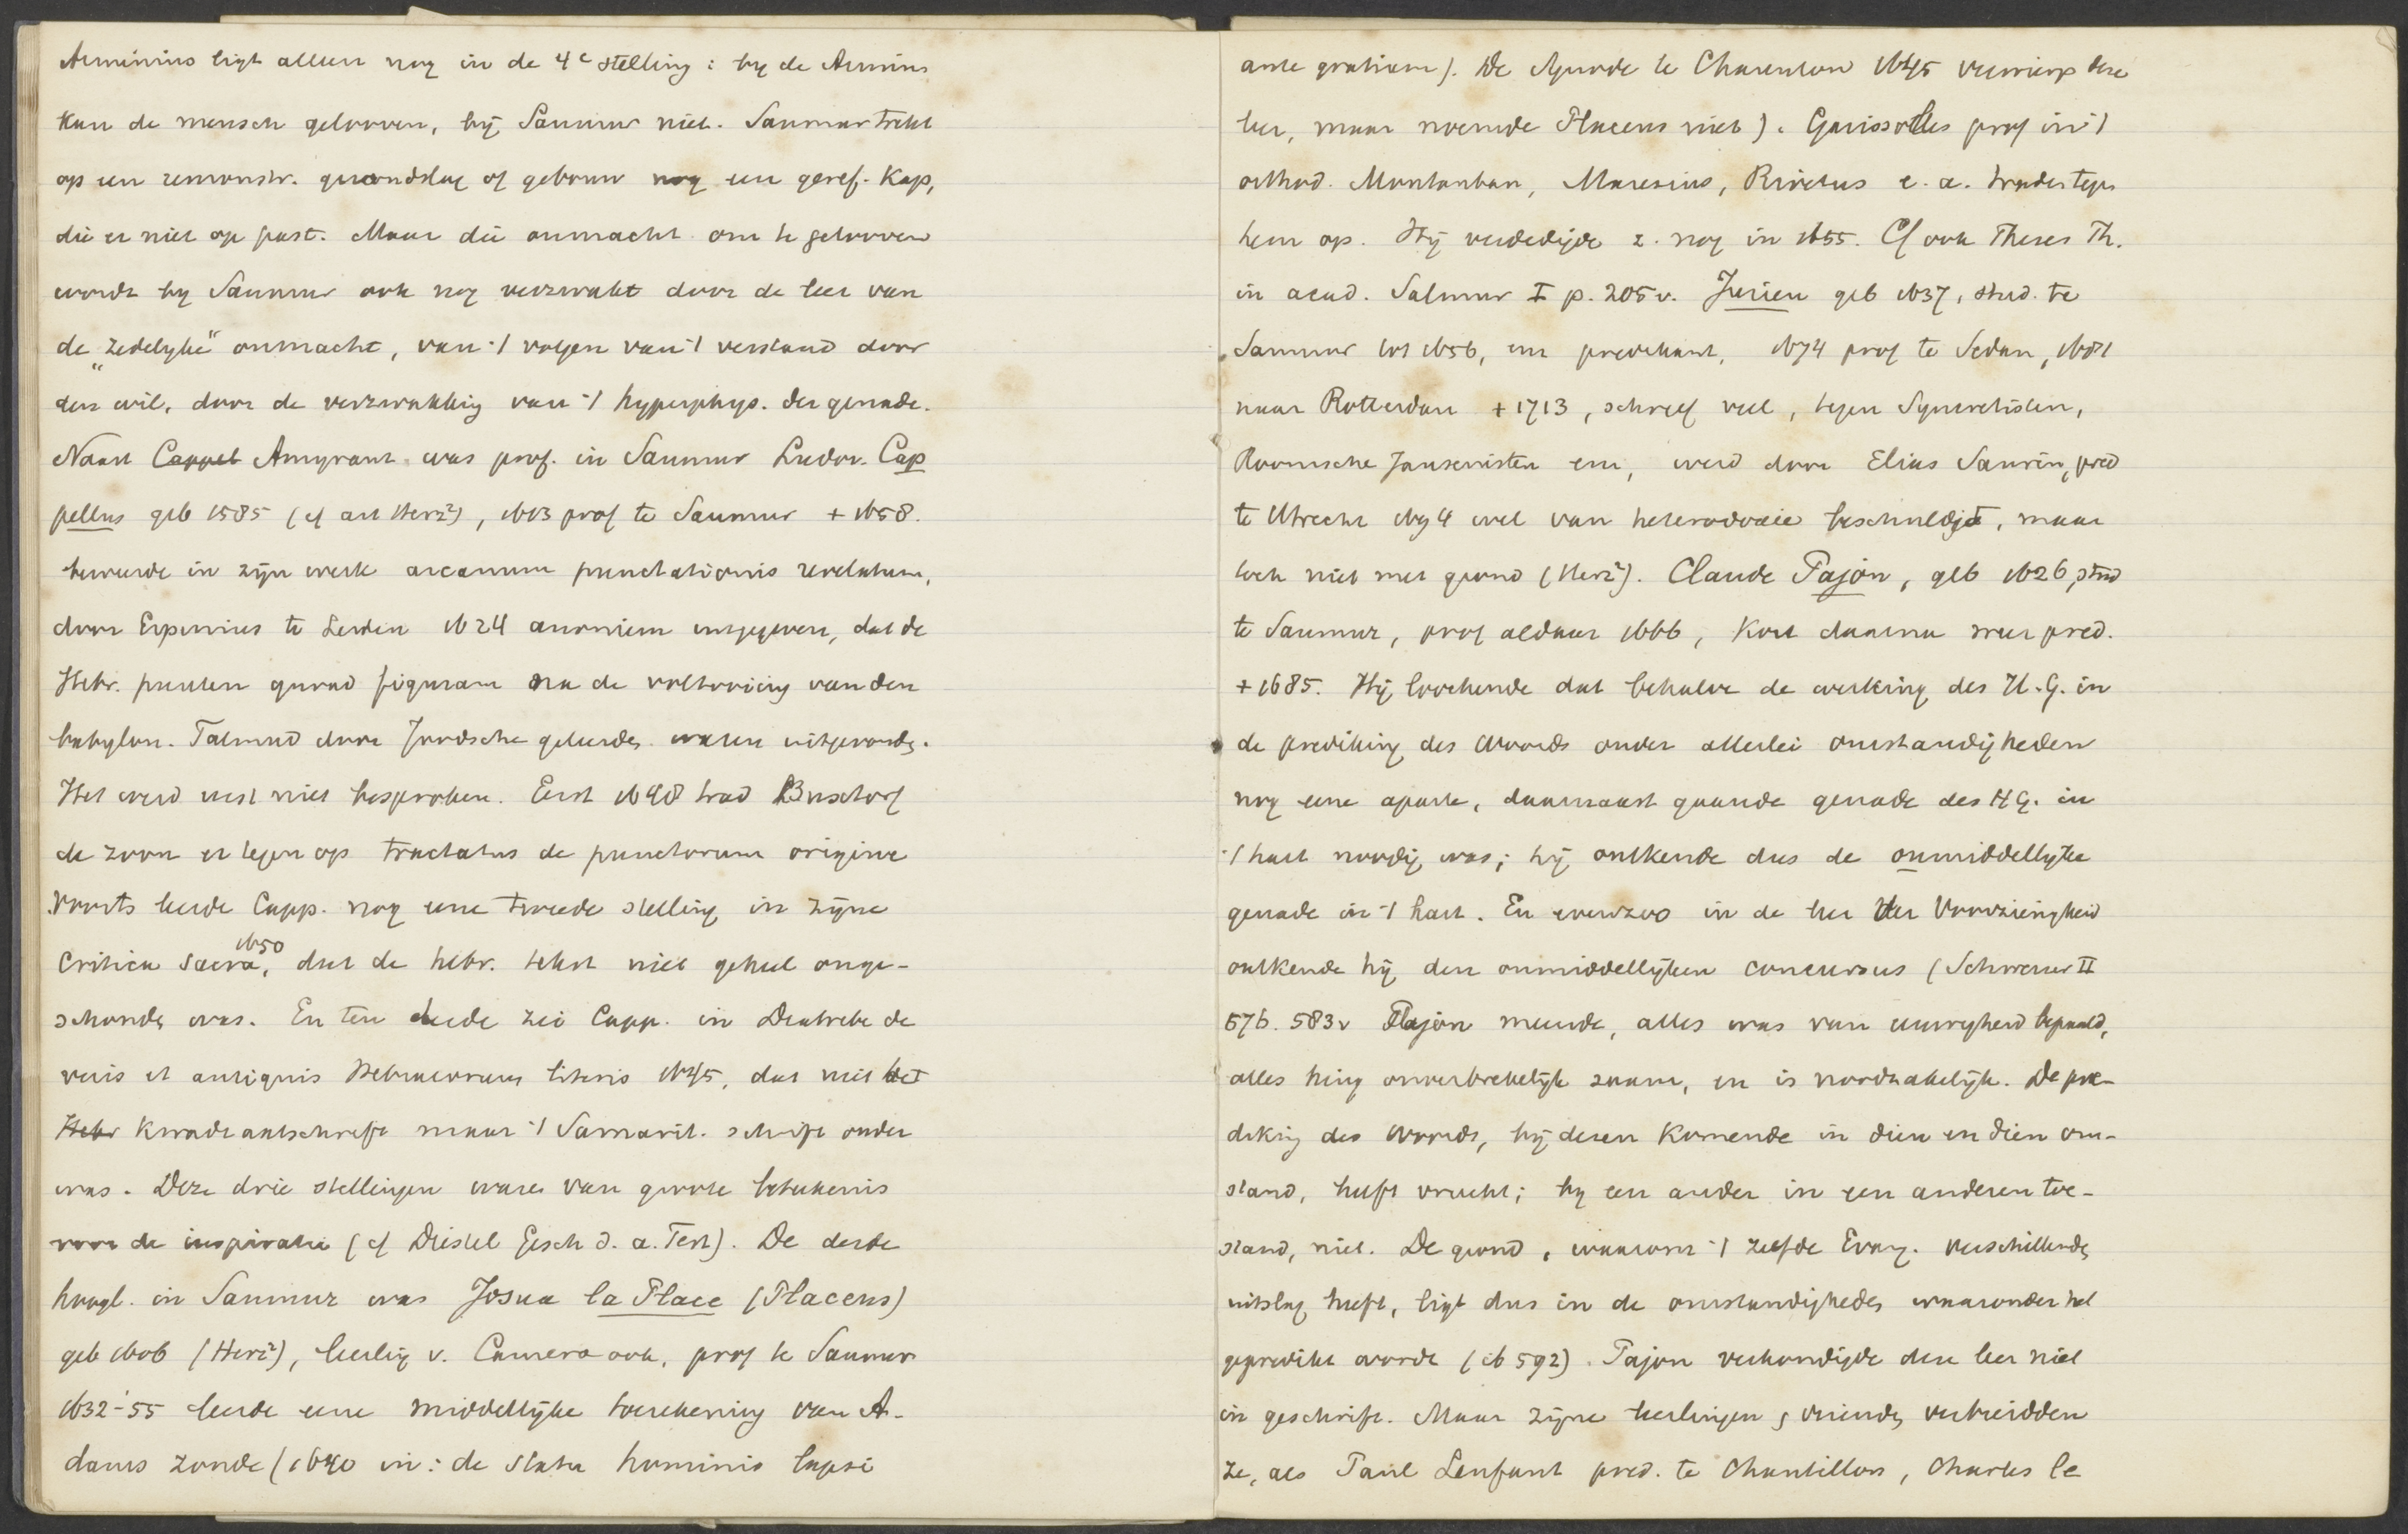 Arminius ligt alleen nog in de 4e stelling: by de Armins
kan de mensch gelooven, bij Saumur niet. Saumur trekt
op een remonstr. grondslag of gebouw nog een geref. kap,
die er niet op past. Maar die onmacht om te gelooven
wordt by Saumur ook nog verzwakt door de leer van
de "zedelyke" onmacht, van 't volgen van 't verstand door
den wil, door de verzwakking van 't hyperphys. der genade.
Naast Cappel Amyraut was prof. in Saumur Ludov. Cap
pellus geb 1585 (cf art Herz²), 1613 prof te Saumur + 1658.
beweerde in zijn werk arcanum punctationis revelatum,
door Erpenius te Leiden 1624 anoniem uitgegeven, dat de
Hebr. punten quoad figuram na de voltooiing van den
babylon. Talmud door Joodsche geleerden waren uitgevonden.
Het werd eerst niet besproken. Eerst 1648 trad Buxtorf
de zoon er tegen op tractatus de punctorum origine
Voorts leerde Capp. nog eene tweede stelling in zijne
Critica sacra, 1650 dat de hebr. tekst niet geheel onge-
schonden was. En ten derde zei Capp. in Diatribe de
veris et antiquis Hebraeorum literis 1645, dat niet het
Hebr kwadraatschrift maar 't Samarit. schrift ouder
was. Deze drie stellingen waren van groote beteekenis
voor de inspiratie (cf Diestel Gesch d. a. Test). De derde
hoogl. in Saumur was Josua la Place (Placeus)
geb 1606 (Herz²), leerling v. Camero ook, prof te Saumur
1632-'55 leerde eene middellijke toerekening van A-
dams zonde (1640 in: de statu hominis lapsi
ante gratiam). De Synode te Charenton 1645 verwierp deze
leer, maar noemde Placeus niet). Garissolles prof in 't
orthod. Montauban, Maresius, Rivetus e. a. traden tegen
hem op. Hij verdedigde z. nog in 1655. Cf ook Theses Th.
in acad. Salmur I p. 205v. Jurieu geb 1637, stud. te
Saumur tot 1656, en predikant, 1674 prof te Sedan, 1681
naar Rotterdam + 1713, schreef veel, tegen Syncretisten,
Roomsche Jansenisten enz, werd door Elias Saurin, pred
te Utrecht 1694 wel van heterodoxie beschuldigd, maar
toch niet met grond (Herz²). Claude Pajon, geb 1626, stud
te Saumur, prof aldaar 1666, kort daarna weer pred.
+ 1685. Hij loochende dat behalve de werking des H. G. in
de prediking des Woords onder allerlei omstandigheden
nog eene aparte, daarnaast gaande genade des H G. in
't hart noodig was; hij ontkende dus de onmiddellyke
genade in 't hart. En evenzoo in de leer der Voorzienigheid
ontkende hij den onmiddellijken concursus (Schweizer II
576. 583v Pajon meende, alles was van eeuwigheid bepaald,
alles hing onverbrekelijk saam, en is noodzakelijk. De pre-
diking des Woords, bij dezen komende in dien en dien om-
stand, heeft vrucht; by een ander in een anderen toe-
stand, niet. De grond, waarom 't zelfde Evang. verschillenden
uitslag heeft, ligt dus in de omstandigheden waaronder het
gepredikt wordt (ib 592). Pajon verkondigde deze leer niet
in geschrift. Maar zijne leerlingen & vrienden verbreidden
ze, als Paul Lenfant pred. te Chantillon, Charles le